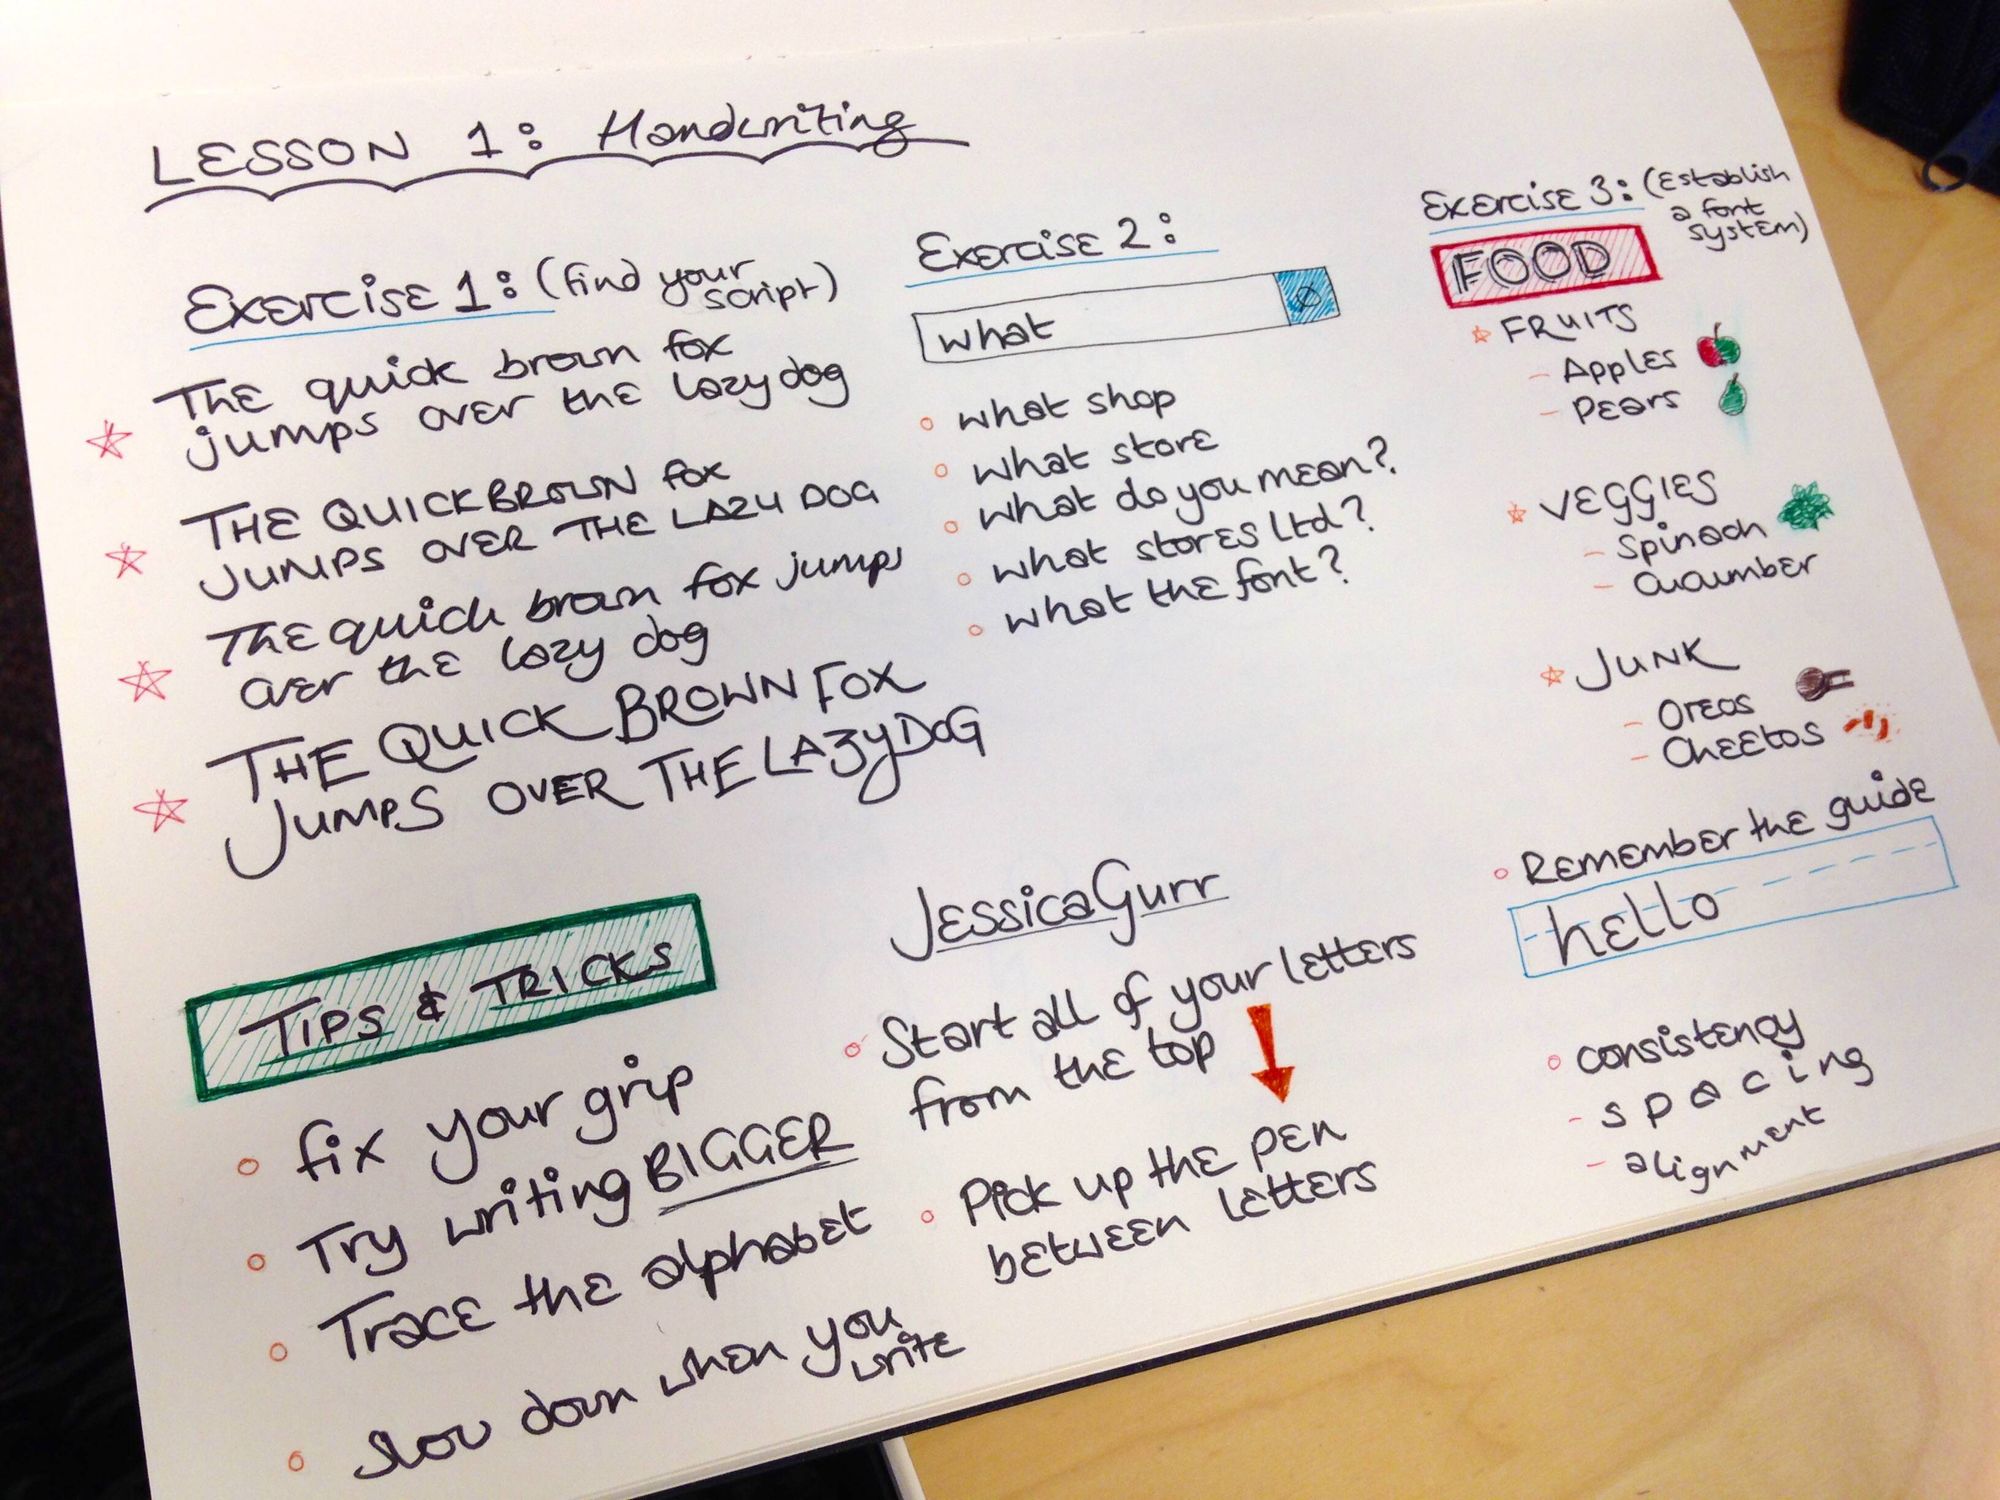 LESSON 1: Handwriting
Exercise 1: (find your
script)
The quick brown fox
jumps over the lazy dog
THE QUICK BROWN FOX
JUMPS OVER THE LAZY DOG
The quick brown fox jumps
over the lazy dog
THE QUICK BROWN FOX
JUMPS OVER THE LAZY DOG
Exercise 2:
what
what shop
what store
what do you mean?
what stores Ltd?
what the font?
Exercise 3: (Establish
a font
system)
FOOD
FRUITS
- Apples
- Pears
VEGGIES
- Spinach
- Cucumber
JUNK
- Oreos
- Cheetos
TIPS & TRICKS
fix your grip
Try writing BIGGER
Trace the alphabet
Slow down when you
write
Jessica Gurr
Start all of your letters
from the top
Pick up the pen
between letters
Remember the guide
hello
consistency
- spacing
- alignment